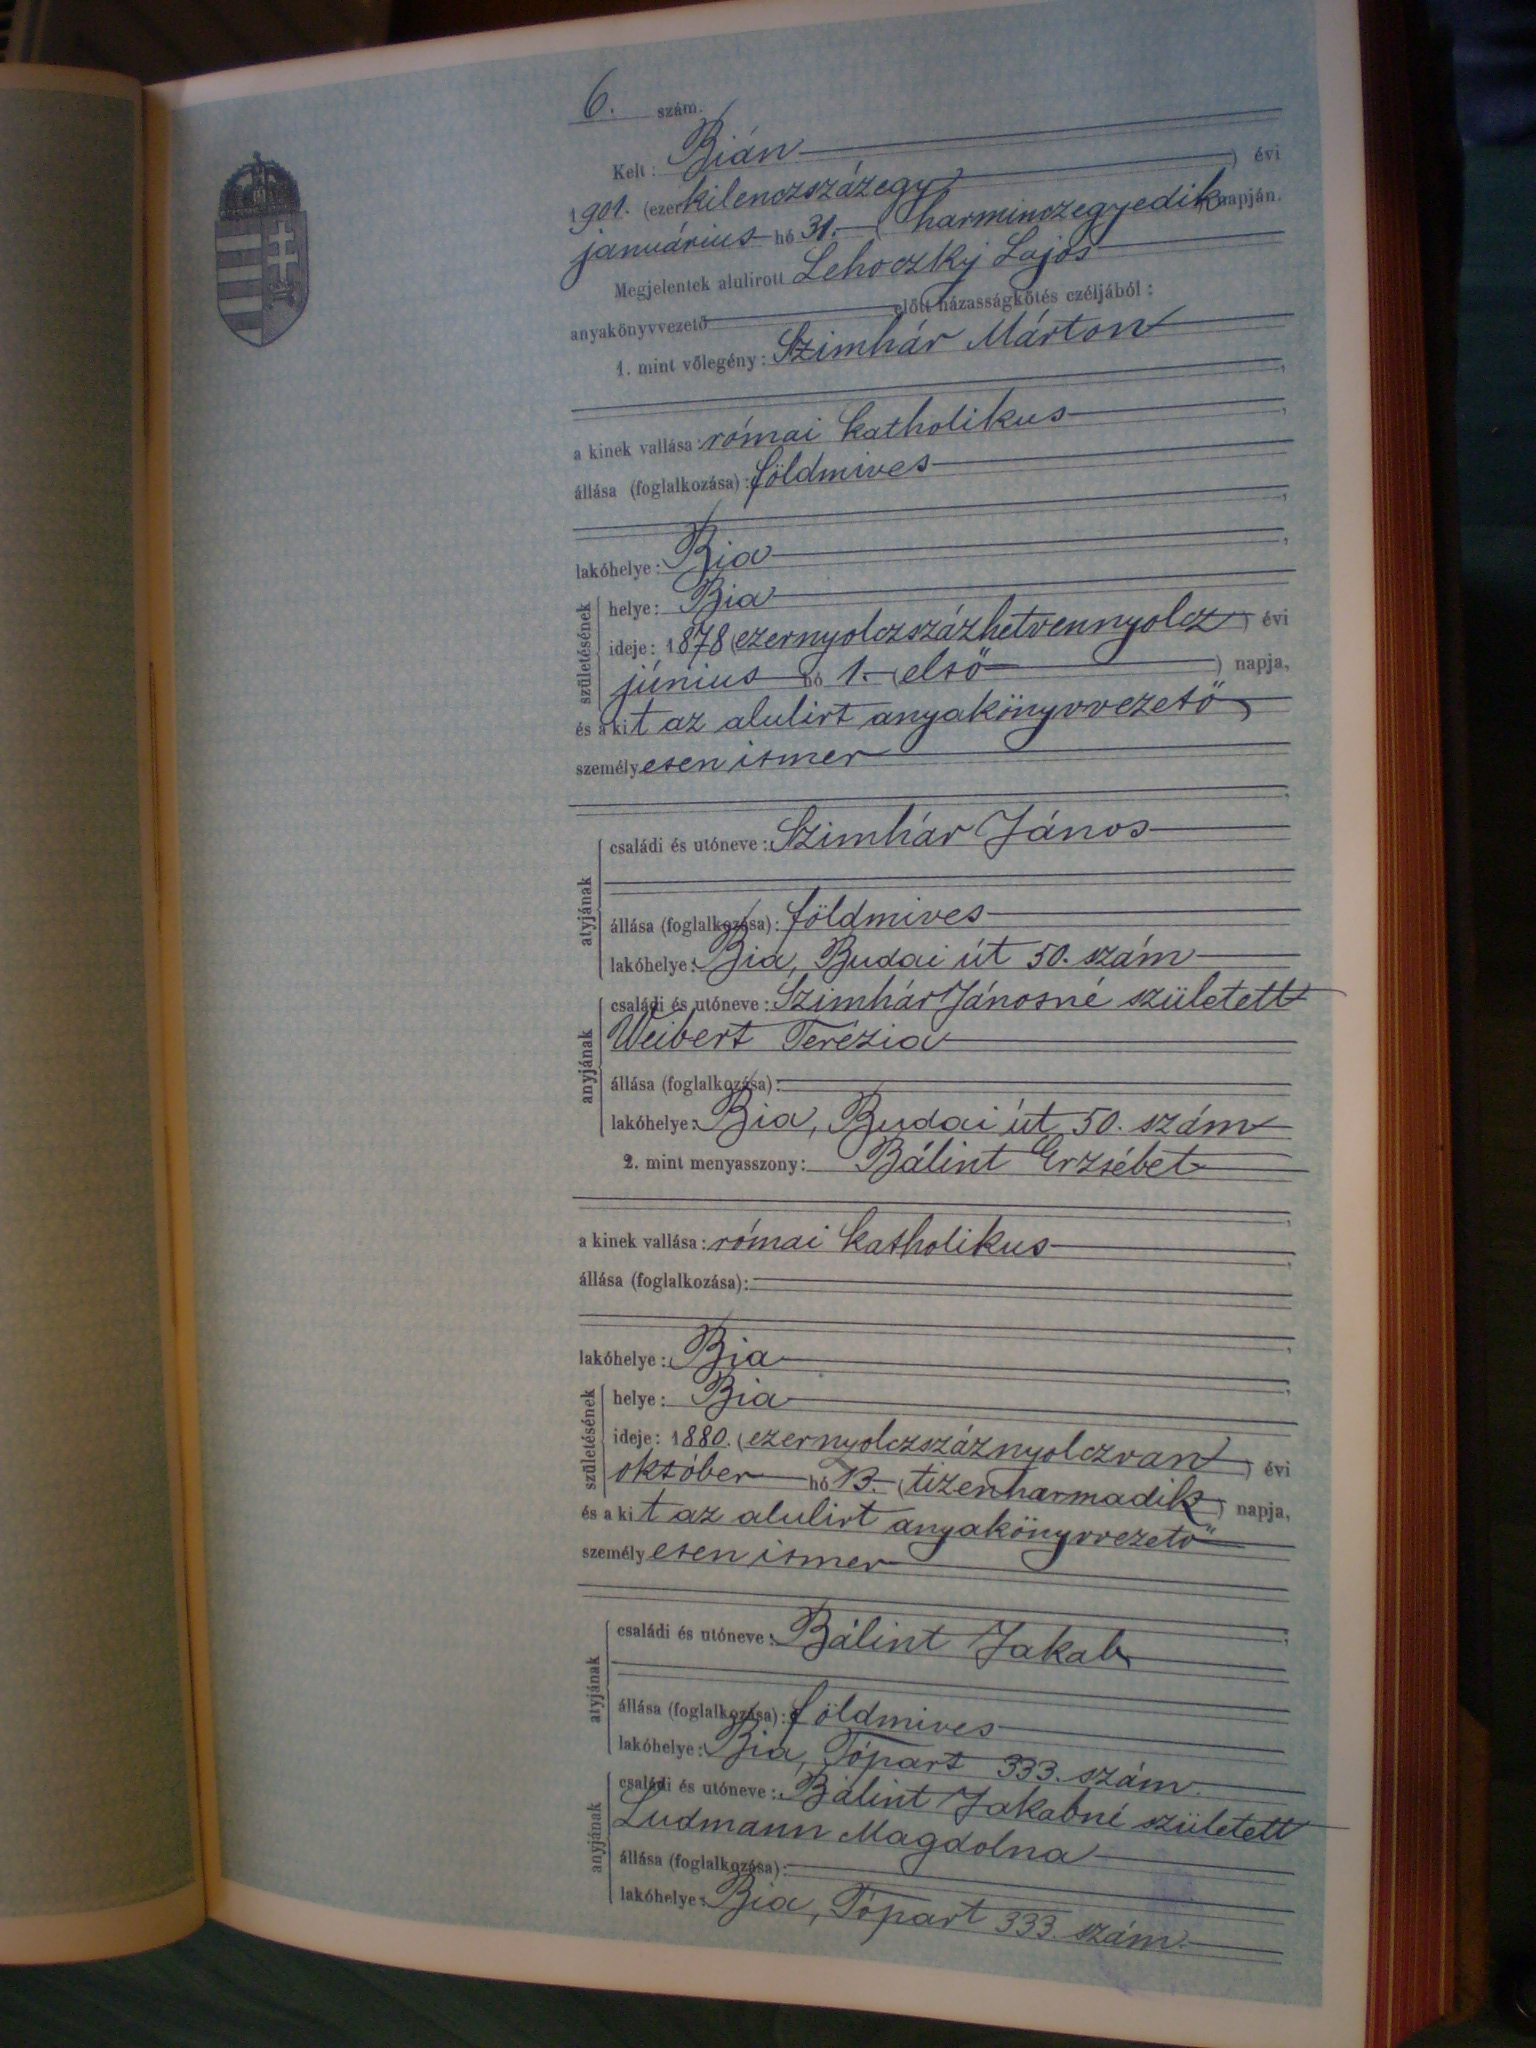 6. szám.
Kelt: Bián
1901. (ezerkilenczszázegy) évi
januárius hó 31. (harminczegyedik) napján.
Megjelentek alulirott Lehoczky Lajos
anyakönyvvezető előtt házasságkötés czéljából:
1. mint vőlegény: Szimhár Márton
a kinek vallása: római katholikus
állása (foglalkozása): földmives
lakóhelye: Bia
születésének
helye: Bia
ideje: 1878 (ezernyolczszázhetvennyolcz) évi
június hó 1. (első) napja,
és a kit az alulirt anyakönyvvezető
személyesen ismer
atyjának
családi és utóneve: Szimhár János
állása (foglalkozása): földmives
lakóhelye: Bia, Budai út 50. szám
anyjának
családi és utóneve: Szimhár Jánosné született
Weibert Terézia
állása (foglalkozása):
lakóhelye: Bia, Budai út 50. szám
2. mint menyasszony: Bálint Erzsébet
a kinek vallása: római katholikus
állása (foglalkozása):
lakóhelye: Bia
születésének
helye: Bia
ideje: 1880. (ezernyolczszáznyolczvan) évi
október hó 13. (tizenharmadik) napja,
és a kit az alulirt anyakönyvvezető
személyesen ismer
atyjának
családi és utóneve: Bálint Jakab
állása (foglalkozása): földmives
lakóhelye: Bia, Tópart 333. szám.
anyjának
családi és utóneve: Bálint Jakabné született
Ludmann Magdolna
állása (foglalkozása):
lakóhelye: Bia, Tópart 333. szám.